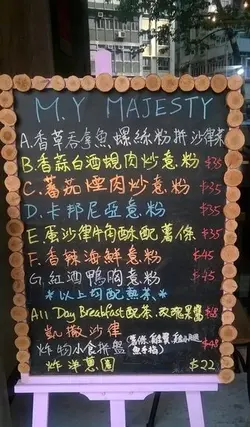 M.Y MAJESTY
A.香草吞拿魚螺絲粉拼沙律菜
B.香蒜白酒蜆肉炒意粉 $35
C.蕃茄煙肉炒意粉 $35
D.卡邦尼亞意粉 $35
E.蛋沙律牛角酥配薯條 $35
F.香辣海鮮意粉 $45
G.紅酒鴨胸意粉 $45
*以上均配熱茶*
All Day Breakfast配茶.玫瑰果醬 $68
凱撒沙律
炸物小食拼盤 $48
炸洋蔥圈 $22